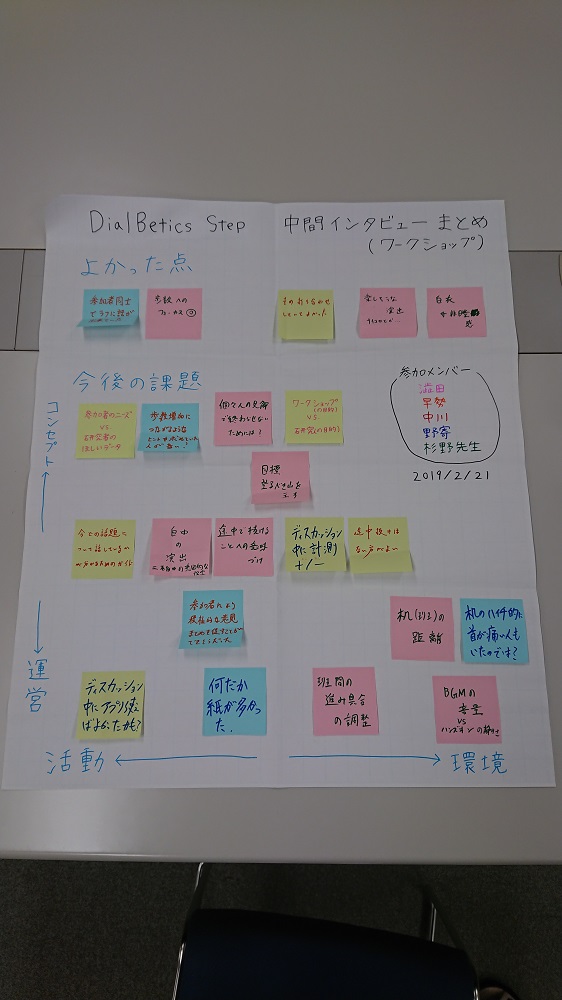 DialBetics Step
中間インタビュー まとめ
(ワークショップ)
よかった点
参加者同士
でラフに話が
歩数への
フォーカス
その打ち合わせ
していてよかった
楽しそうな
演出
白衣
今後の課題
コンセプト
参加者のニーズ
vs
研究者の
ほしいデータ
歩数増加に
つながるような
個々人の見解
で終わらせない
ためには!
ワークショップ
(の目的)
vs
研究(の目的)
目標
登るべき山を
示す
参加メンバー
澁田
早勢
中川
野寄
杉野先生
2019/2/21
今どの話題に
ついて話しているか
自由
の
演出
途中で抜ける
ことへの意味
づけ
ディスカッション
中に計測
+/-
途中抜けは
ない方がよい
参加者により
積極的な意見
まとめを促すことが
机(と机)の
距離
机のハイチ的に
首が痛い人も
いたのでは?
運営
ディスカッション
中にアプリ使え
ばよかったかも?
何だか
紙が多かっ
た.
班間の
進み具合
の調整
BGMの
音量
vs
活動
環境